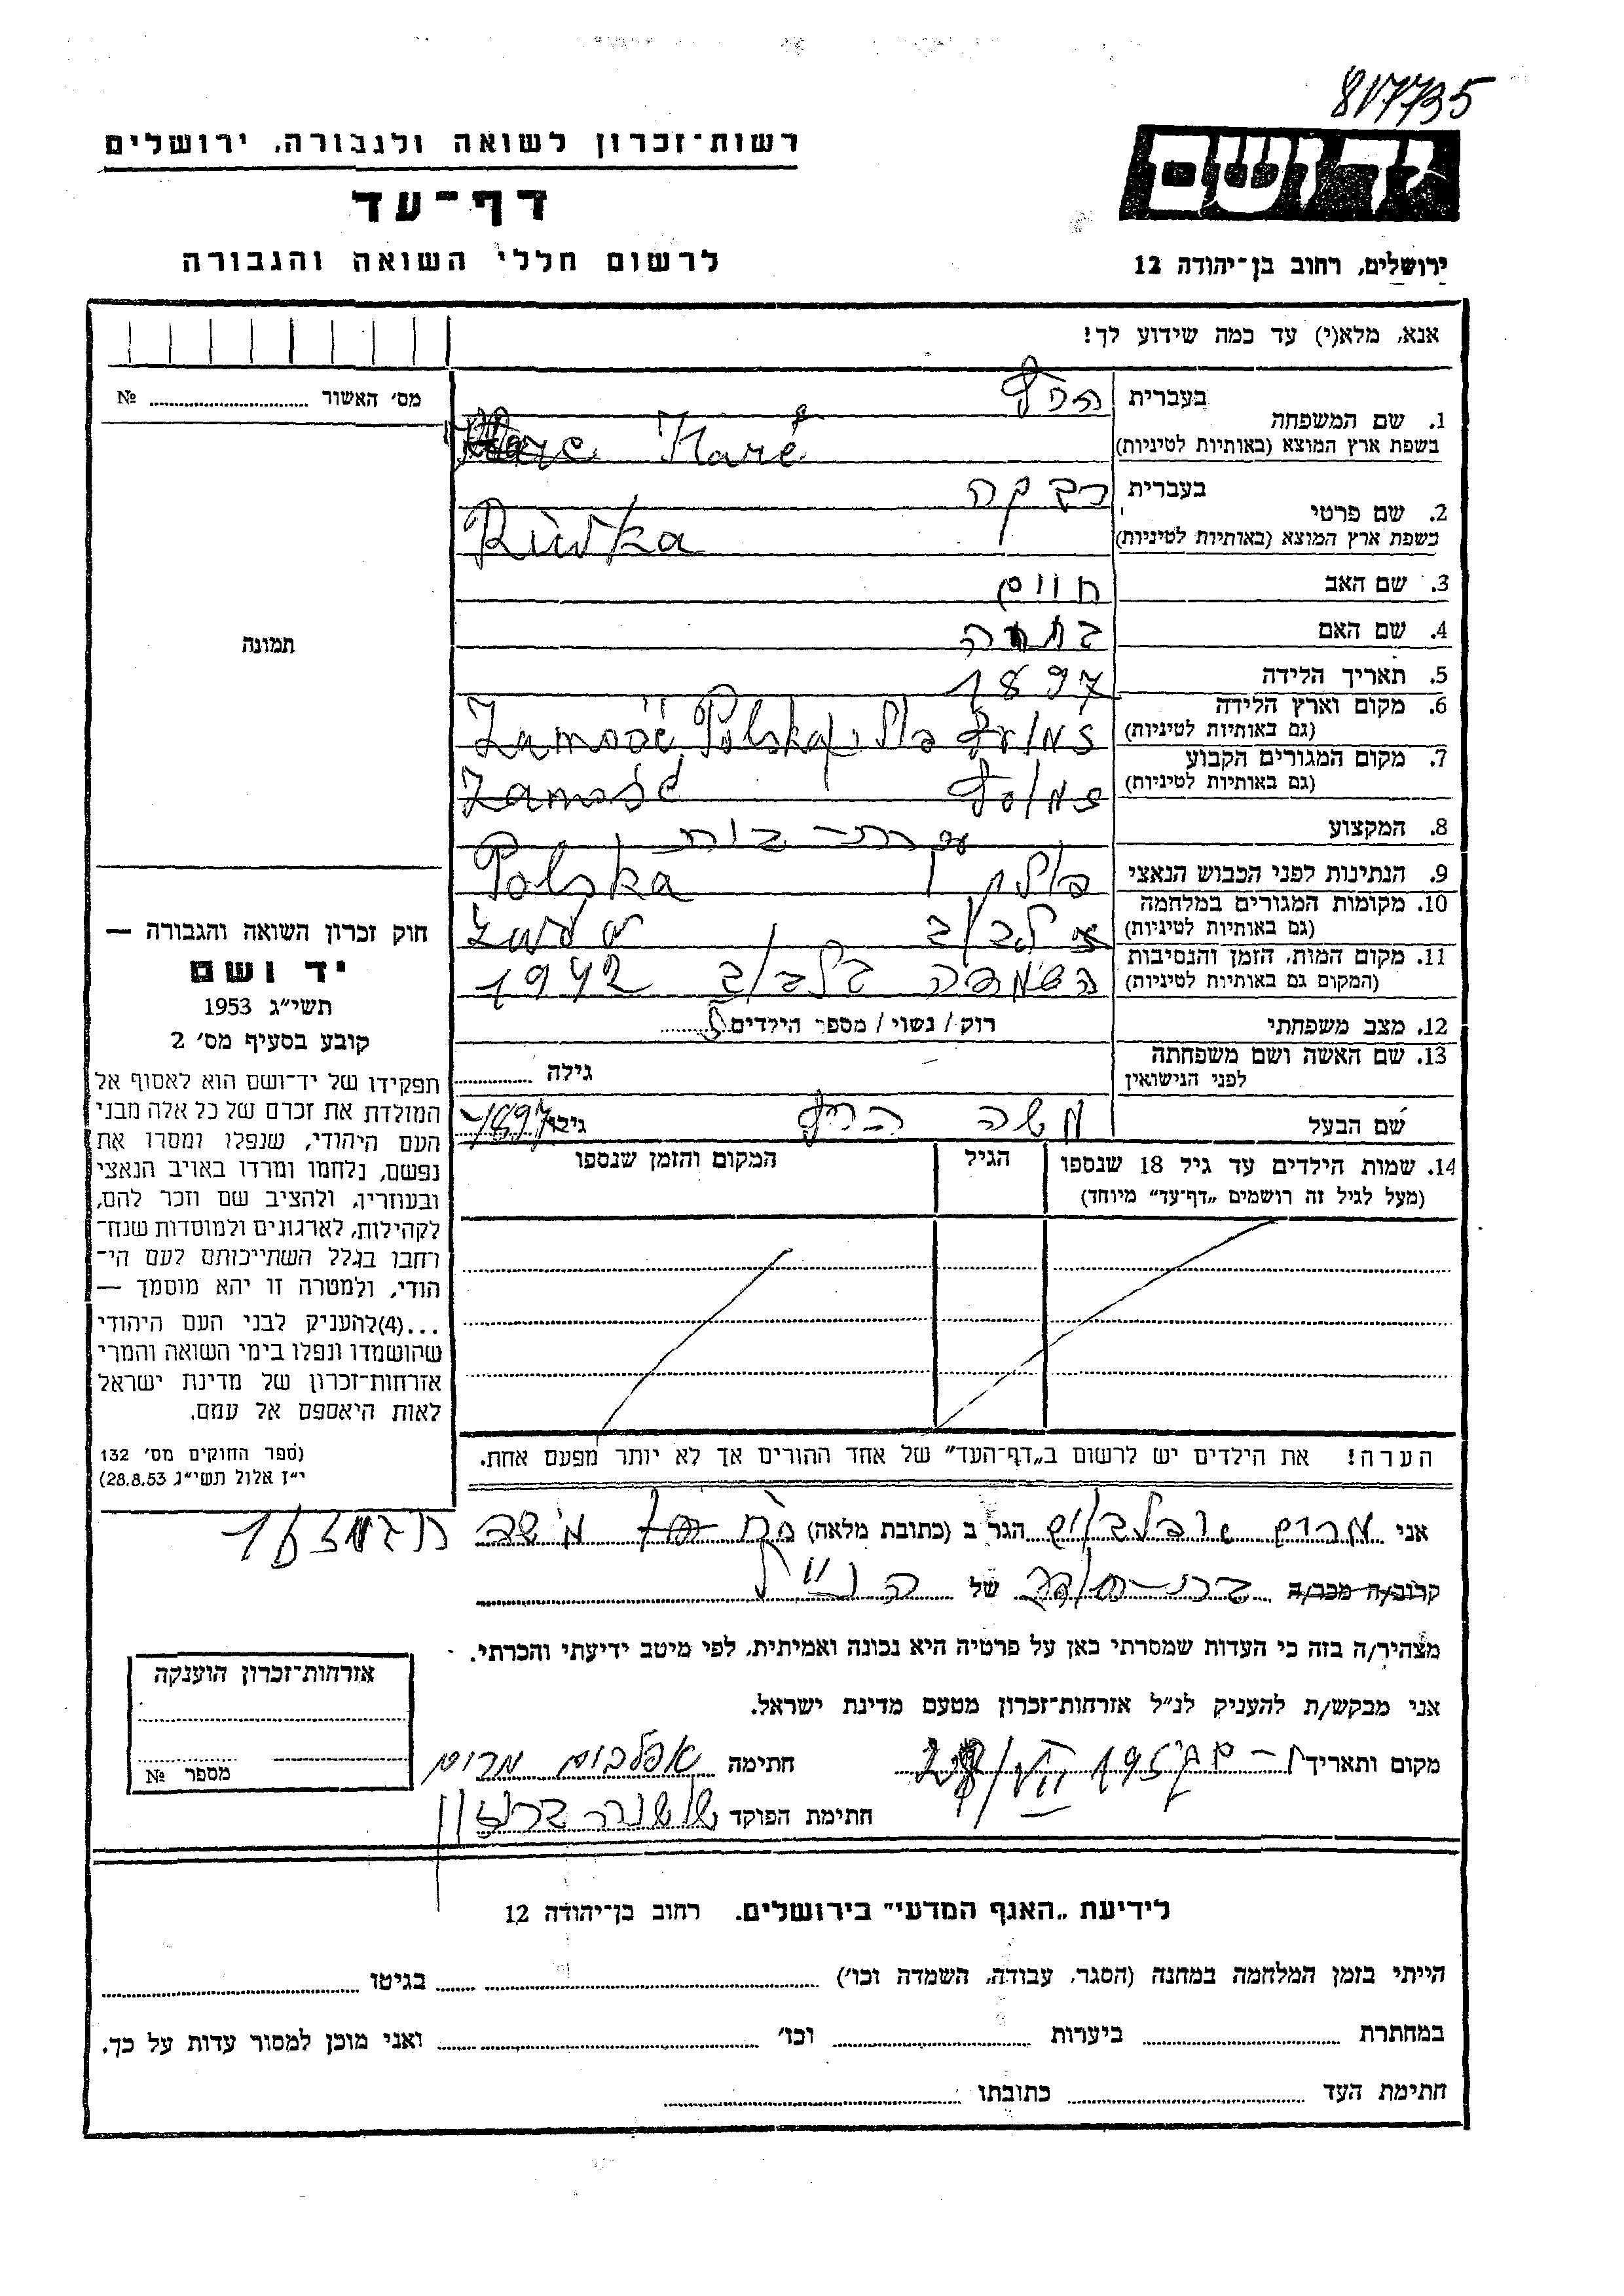 817735
רשות־זכרון לשואה ולגבורה, ירושלים
יד ושם
דף־עד
לרשום חללי השואה והגבורה
ירושלים, רחוב בן־יהודה 12
אנא, מלא(י) עד כמה שידוע לך!
מס׳ האשור № 
1. שם המשפחה
בעברית
בשפת ארץ המוצא (באותיות לטיניות) Haré
2. שם פרטי
בעברית רבקה
בשפת ארץ המוצא (באותיות לטיניות) Riwka
3. שם האב חיים
4. שם האם
5. תאריך הלידה 1897
6. מקום וארץ הלידה
(גם באותיות לטיניות) Zamość Polska
7. מקום המגורים הקבוע
(גם באותיות לטיניות) Zamość
8. המקצוע עקרת־בית
9. הנתינות לפני הכבוש הנאצי Polska
10. מקומות המגורים במלחמה
(גם באותיות לטיניות)
11. מקום המות, הזמן והנסיבות
(המקום גם באותיות לטיניות) 1942
12. מצב משפחתי רוק / נשוי / מספר הילדים
13. שם האשה ושם משפחתה
לפני הנישואין
גילה
שם הבעל משה
גילו 1897
14. שמות הילדים עד גיל 18 שנספו
(מעל לגיל זה רושמים „דף־עד״ מיוחד)
הגיל
המקום והזמן שנספו
הערה! את הילדים יש לרשום ב„דף־העד״ של אחד ההורים אך לא יותר מפעם אחת.
תמונה
חוק זכרון השואה והגבורה —
יד ושם
תשי״ג 1953
קובע בסעיף מס׳ 2
תפקידו של יד־ושם הוא לאסוף אל
המולדת את זכרם של כל אלה מבני
העם היהודי, שנפלו ומסרו את
נפשם, נלחמו ומרדו באויב הנאצי
ובעוזריו, ולהציב שם וזכר להם,
לקהילות, לארגונים ולמוסדות שנח־
רחבו בגלל השתייכותם לעם הי־
הודי, ולמטרה זו יהא מוסמך —
...(4)להעניק לבני העם היהודי
שהושמדו ונפלו בימי השואה והמרי
אזרחות־זכרון של מדינת ישראל
לאות היאספם אל עמם.
(ספר החוקים מס׳ 132
י״ז אלול תשי״ג 28.8.53)
אני מרים הגר ב (כתובת מלאה)
קרוב/ה מכר/ה של הנ״ל
מצהיר/ה בזה כי העדות שמסרתי כאן על פרטיה היא נכונה ואמיתית, לפי מיטב ידיעתי והכרתי.
אני מבקש/ת להעניק לנ״ל אזרחות־זכרון מטעם מדינת ישראל.
מקום ותאריך חתימה אפלבוים מרים
חתימת הפוקד
אזרחות־זכרון הוענקה
מספר №
לידיעת „האגף המדעי״ בירושלים, רחוב בן־יהודה 12
הייתי בזמן המלחמה במחנה (הסגר, עבודה, השמדה וכו׳) בגיטו
במחתרת ביערות וכו׳ ואני מוכן למסור עדות על כך.
חתימת העד כתובתו